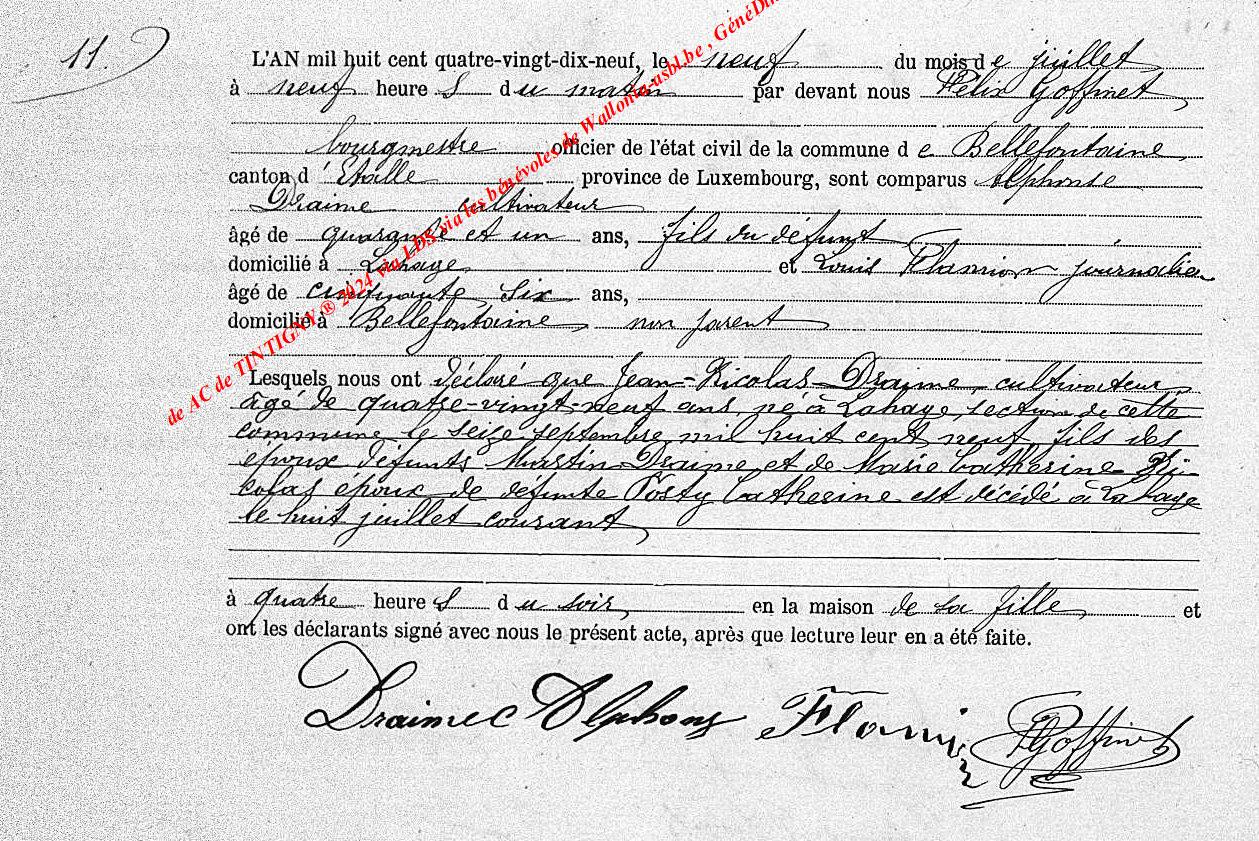 11.
L'AN mil huit cent quatre-vingt-dix-neuf, le neuf du mois de juillet
à neuf heures du matin par devant nous Félix Goffinet,
bourgmestre officier de l'état civil de la commune de Bellefontaine,
canton d'Etalle province de Luxembourg, sont comparus Alphonse
Draime cultivateur
âgé de quarante et un ans, fils du défunt
domicilié à Lahage et Louis Flamion journalier
âgé de cinquante six ans,
domicilié à Bellefontaine, non parent
Lesquels nous ont déclaré que Jean-Nicolas Draime, cultivateur,
âgé de quatre-vingt-neuf ans, né à Lahage, section de cette
commune le seize septembre mil huit cent neuf, fils des
époux défunts Martin Draime et de Marie Catherine Ni-
colas époux de défunte Posty Catherine est décédé à Lahage
le huit juillet courant
à quatre heures du soir, en la maison de sa fille et
ont les déclarants signé avec nous le présent acte, après que lecture leur en a été faite.
Draime Alphons Flami FGoffinet
de AC de TINTIGNY ® 2024 via LDS via les bénévoles de Wallonia-asbl.be , GénéDin